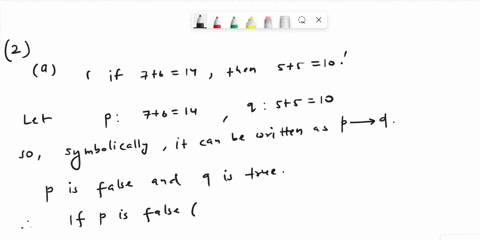 (2)
(a) ' if 7+6=14, then 5+5=10.'
Let p: 7+6=14, q: 5+5=10
so, symbolically, it can be written as p⟶q.
p is false and q is true.
∴ If p is false (